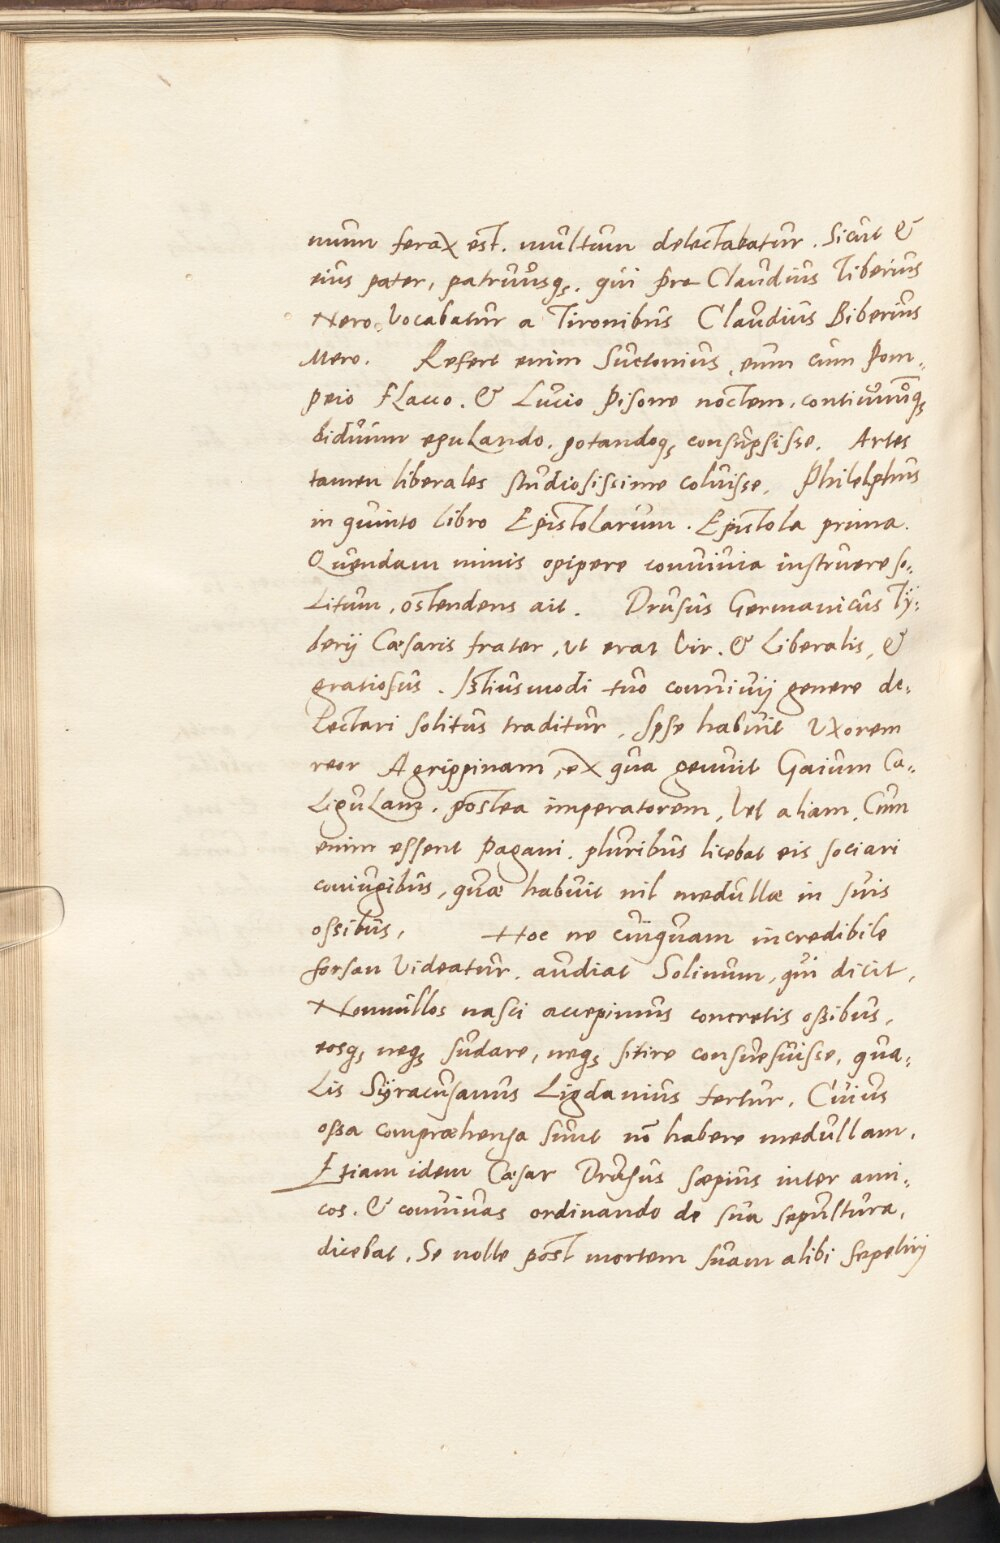 num ferax est. multum delectabatur. Sicut &
eius pater, patruusq;. qui pro Claudius Tiberius
Nero. Vocabatur a Tironibus Claudius Biberius
Mero. Refert enim Suetonius, eum cum Pom-
peio Flacco. & Lucio Pisone noctem. continuūq;
biduum epulando. potandoq; consūpsisse. Artes
tamen liberales studiosissime coluisse. Philelphus
in quinto libro Epistolarum. Epistola prima.
Quendam nimis opipere conuiuia instruere so-
litum, ostendens ait. Drusus Germanicus Ty-
berij Cæsaris frater, ut erat Vir. & Liberalis, &
gratiosus. Istiusmodi tuo conuiuij genere de-
lectari solitus traditur, Ipse habuit Uxorem
reor Agrippinam, ex qua genuit Gaium Ca-
ligulam. postea imperatorem, Vel aliam. Cum
enim essent Pagani. pluribus licebat eis sociari
coniugibus, quæ habuit nil medullæ in suis
ossibus, Hoc ne cuiquam incredibile
forsan Videatur. audiat Solinum, qui dicit,
Nonnullos nasci accepimus concretis ossibus,
eosq; neq; sudare, neq; sitire consuesuisse, qua-
lis Syracusanus Ligdamus fertur. Cuius
ossa compræhensa sunt nō habere medullam.
Etiam idem Cæsar Drusus sæpius inter ami-
cos. & conuiuas ordinando de sua sepultura,
dicebat. Se nolle post mortem suam alibi sepeliri